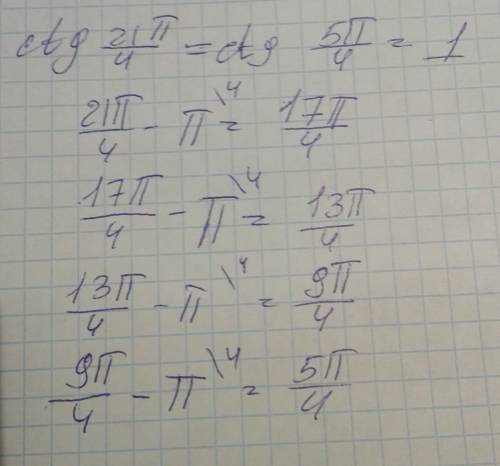 ctg 21π/4 = ctg 5π/4 = 1
21π/4 - π\4 = 17π/4
17π/4 - π\4 = 13π/4
13π/4 - π\4 = 9π/4
9π/4 - π\4 = 5π/4